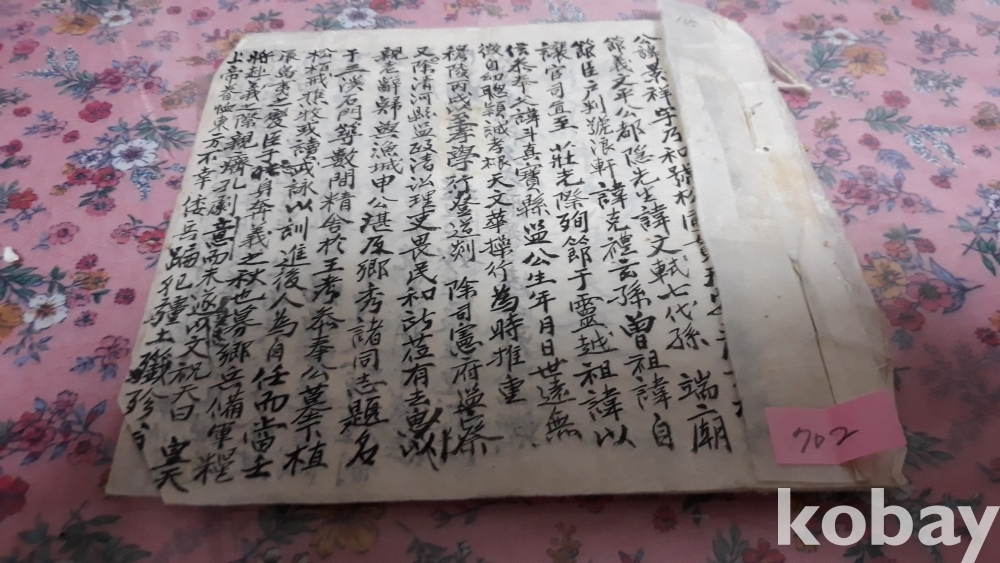 公諱景祥字乃和號松
節義文平公都隱先生諱文軾七代孫 端廟
節臣戶判號浪軒諱克禮玄孫曾祖諱自
讓官司直至 莊光際殉節于靈越祖諱以
俊參奉父諱斗真寶縣監公生年月日世遠無
徵自幼聰穎誠孝根天文華操行為時推重
穆陵丙戌至孝學行登道剡 除司憲府監察
又除清河縣監政清訟理吏畏民和所莅有去思以
親老辭歸與漁城申公湛及鄉秀諸同志題名
于三溪石門等數間精舍於王考參奉公墓下植
松栢戒樵牧或讀或詠以訓進後人為自任而當壬
辰島夷之變臣子 身奔義之秋也募鄉兵備軍糧
將赴義之際親癠孔劇意而未遂以文祝天曰 皇天
上帝 東方不幸 倭兵蹢犯疆土殲殄
702
kobay